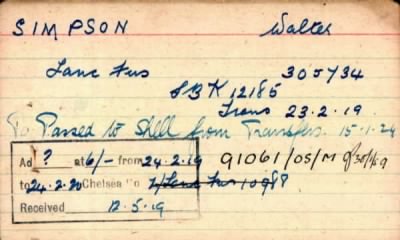 SIMPSON Walter
Lanc Fus 305734
SBK 12185
Trans 23.2.19
To Passed to Shell from Transfers. 15-1-24
Ad ? at 6/- from 24.2.19 91061/OS/M of 30/1/19
to 24.2.20 Chelsea No 2/Lanc Fus 10988
Received 12.5.19